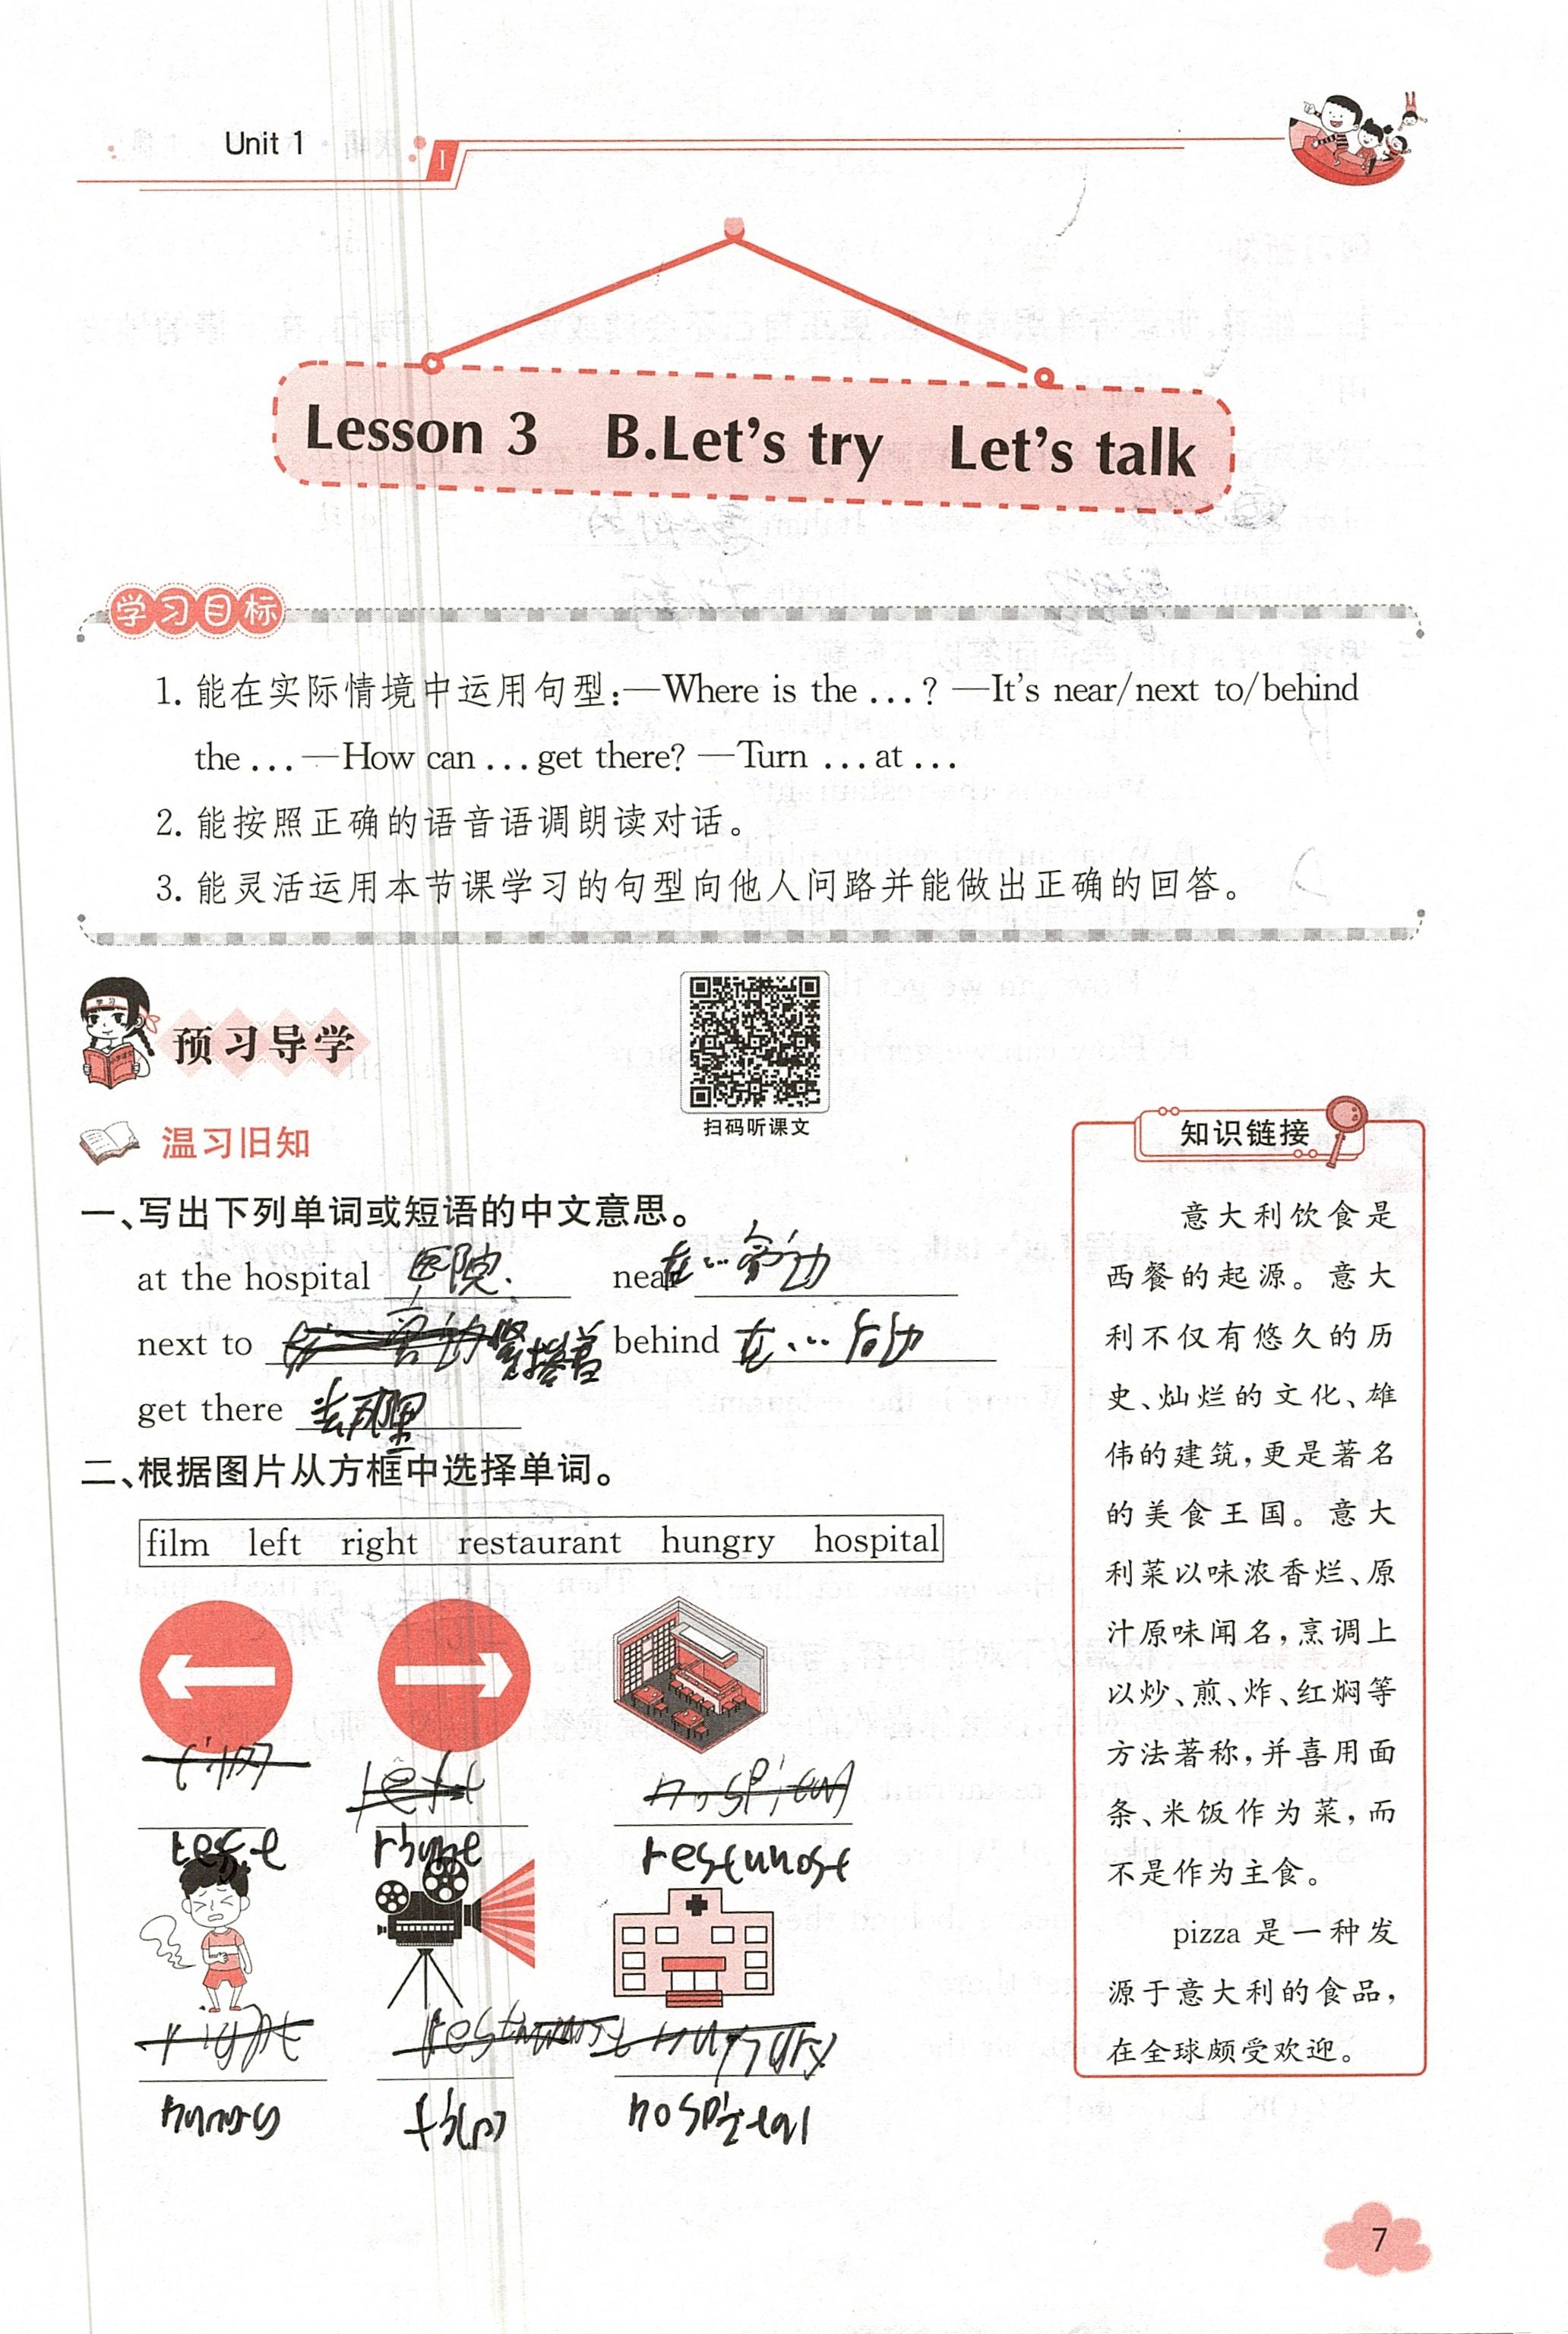 Unit 1
1
Lesson 3 B.Let's try Let's talk
学习目标
1. 能在实际情境中运用句型:—Where is the ...? —It's near/next to/behind
the ... —How can ... get there? —Turn ... at ...
2. 能按照正确的语音语调朗读对话。
3. 能灵活运用本节课学习的句型向他人问路并能做出正确的回答。
学习
预习导学
扫码听课文
温习旧知
一、写出下列单词或短语的中文意思。
at the hospital 医院. near 在…旁边
next to 紧接着 behind 在…后边
get there 去那里
二、根据图片从方框中选择单词。
film left right restaurant hungry hospital
film left hospital
right restaurant hungry
film hospital
知识链接
意大利饮食是
西餐的起源。意大
利不仅有悠久的历
史、灿烂的文化、雄
伟的建筑,更是著名
的美食王国。意大
利菜以味浓香烂、原
汁原味闻名,烹调上
以炒、煎、炸、红焖等
方法著称,并喜用面
条、米饭作为菜,而
不是作为主食。
pizza 是一种发
源于意大利的食品,
在全球颇受欢迎。
7